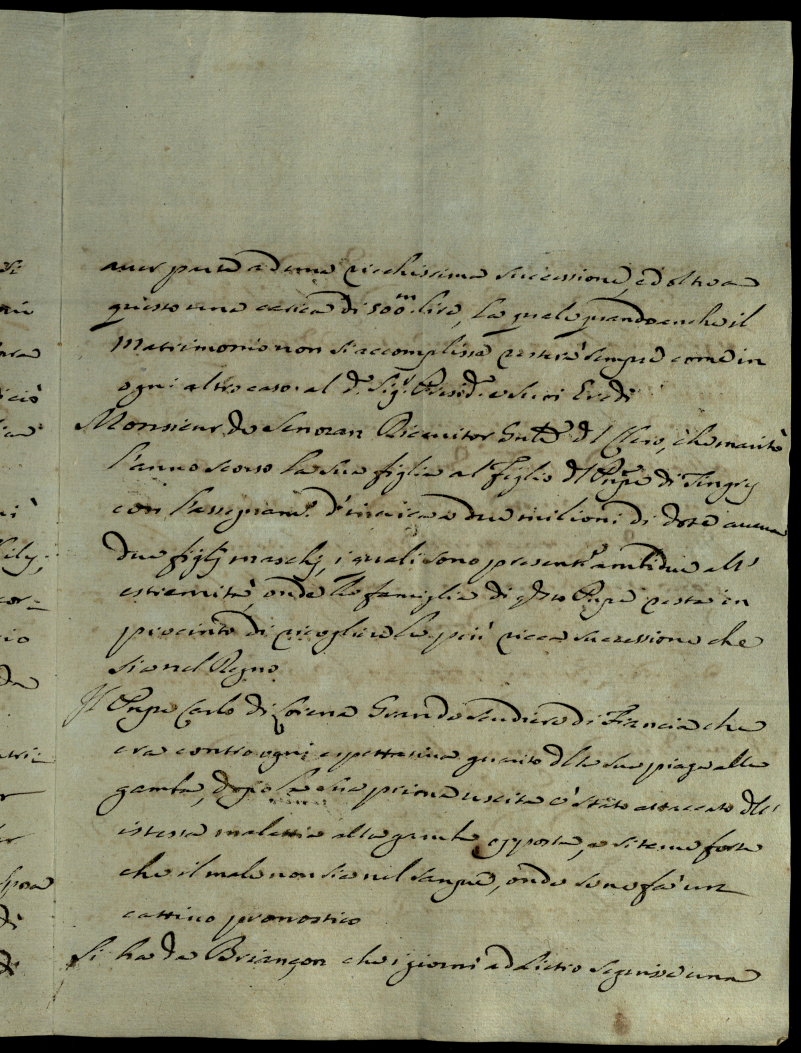 si
aver parte ad una ricchissima successione, ed oltre a
questo una carica di 500.m lire, la quale quando anche il
Matrimonio non si accomplisse resterà sempre come in
ogni altro caso al d.º Sig.r Presid.e e suoi Eredi
Monsieur de Senozan Ricevitor Gnle del Clero, che maritò
l'anno scorso la sua figlia al Figlio del Pnpe di Tingry
con l'assegnam.to d'incirca a due milioni di dote aveva
due figlj maschj, i quali sono present.e ambidue all'
estremità, onde la famiglia di qsto Pnpe resta in
procinto di ricogliere la più ricca successione che
sia nel Regno
Il Pnpe Carlo di Lorena Grande Scudiere di Francia che
era contro ogni espettativa guarito della sua piaga alla
gamba, dopo la sua prima uscita è stato attaccato dell'
istessa malattia alla gamba opposta, e si teme forte
che il male non sia nel sangue, onde se ne fà un
cattivo pronostico
Si ha da Briançon che i giorni addietro seguisse una